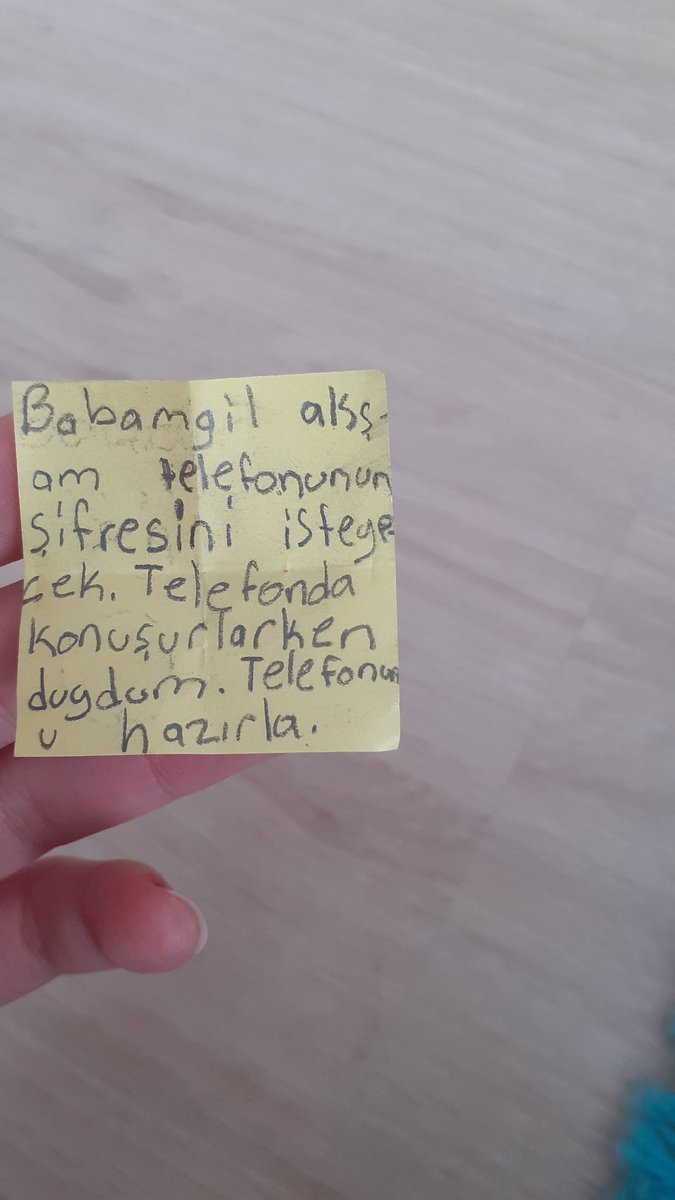 Babamgil akş-
am telefonunun
şifresini isteye
cek. Telefonda
konuşurlarken
duydum. Telefonun
u hazırla.